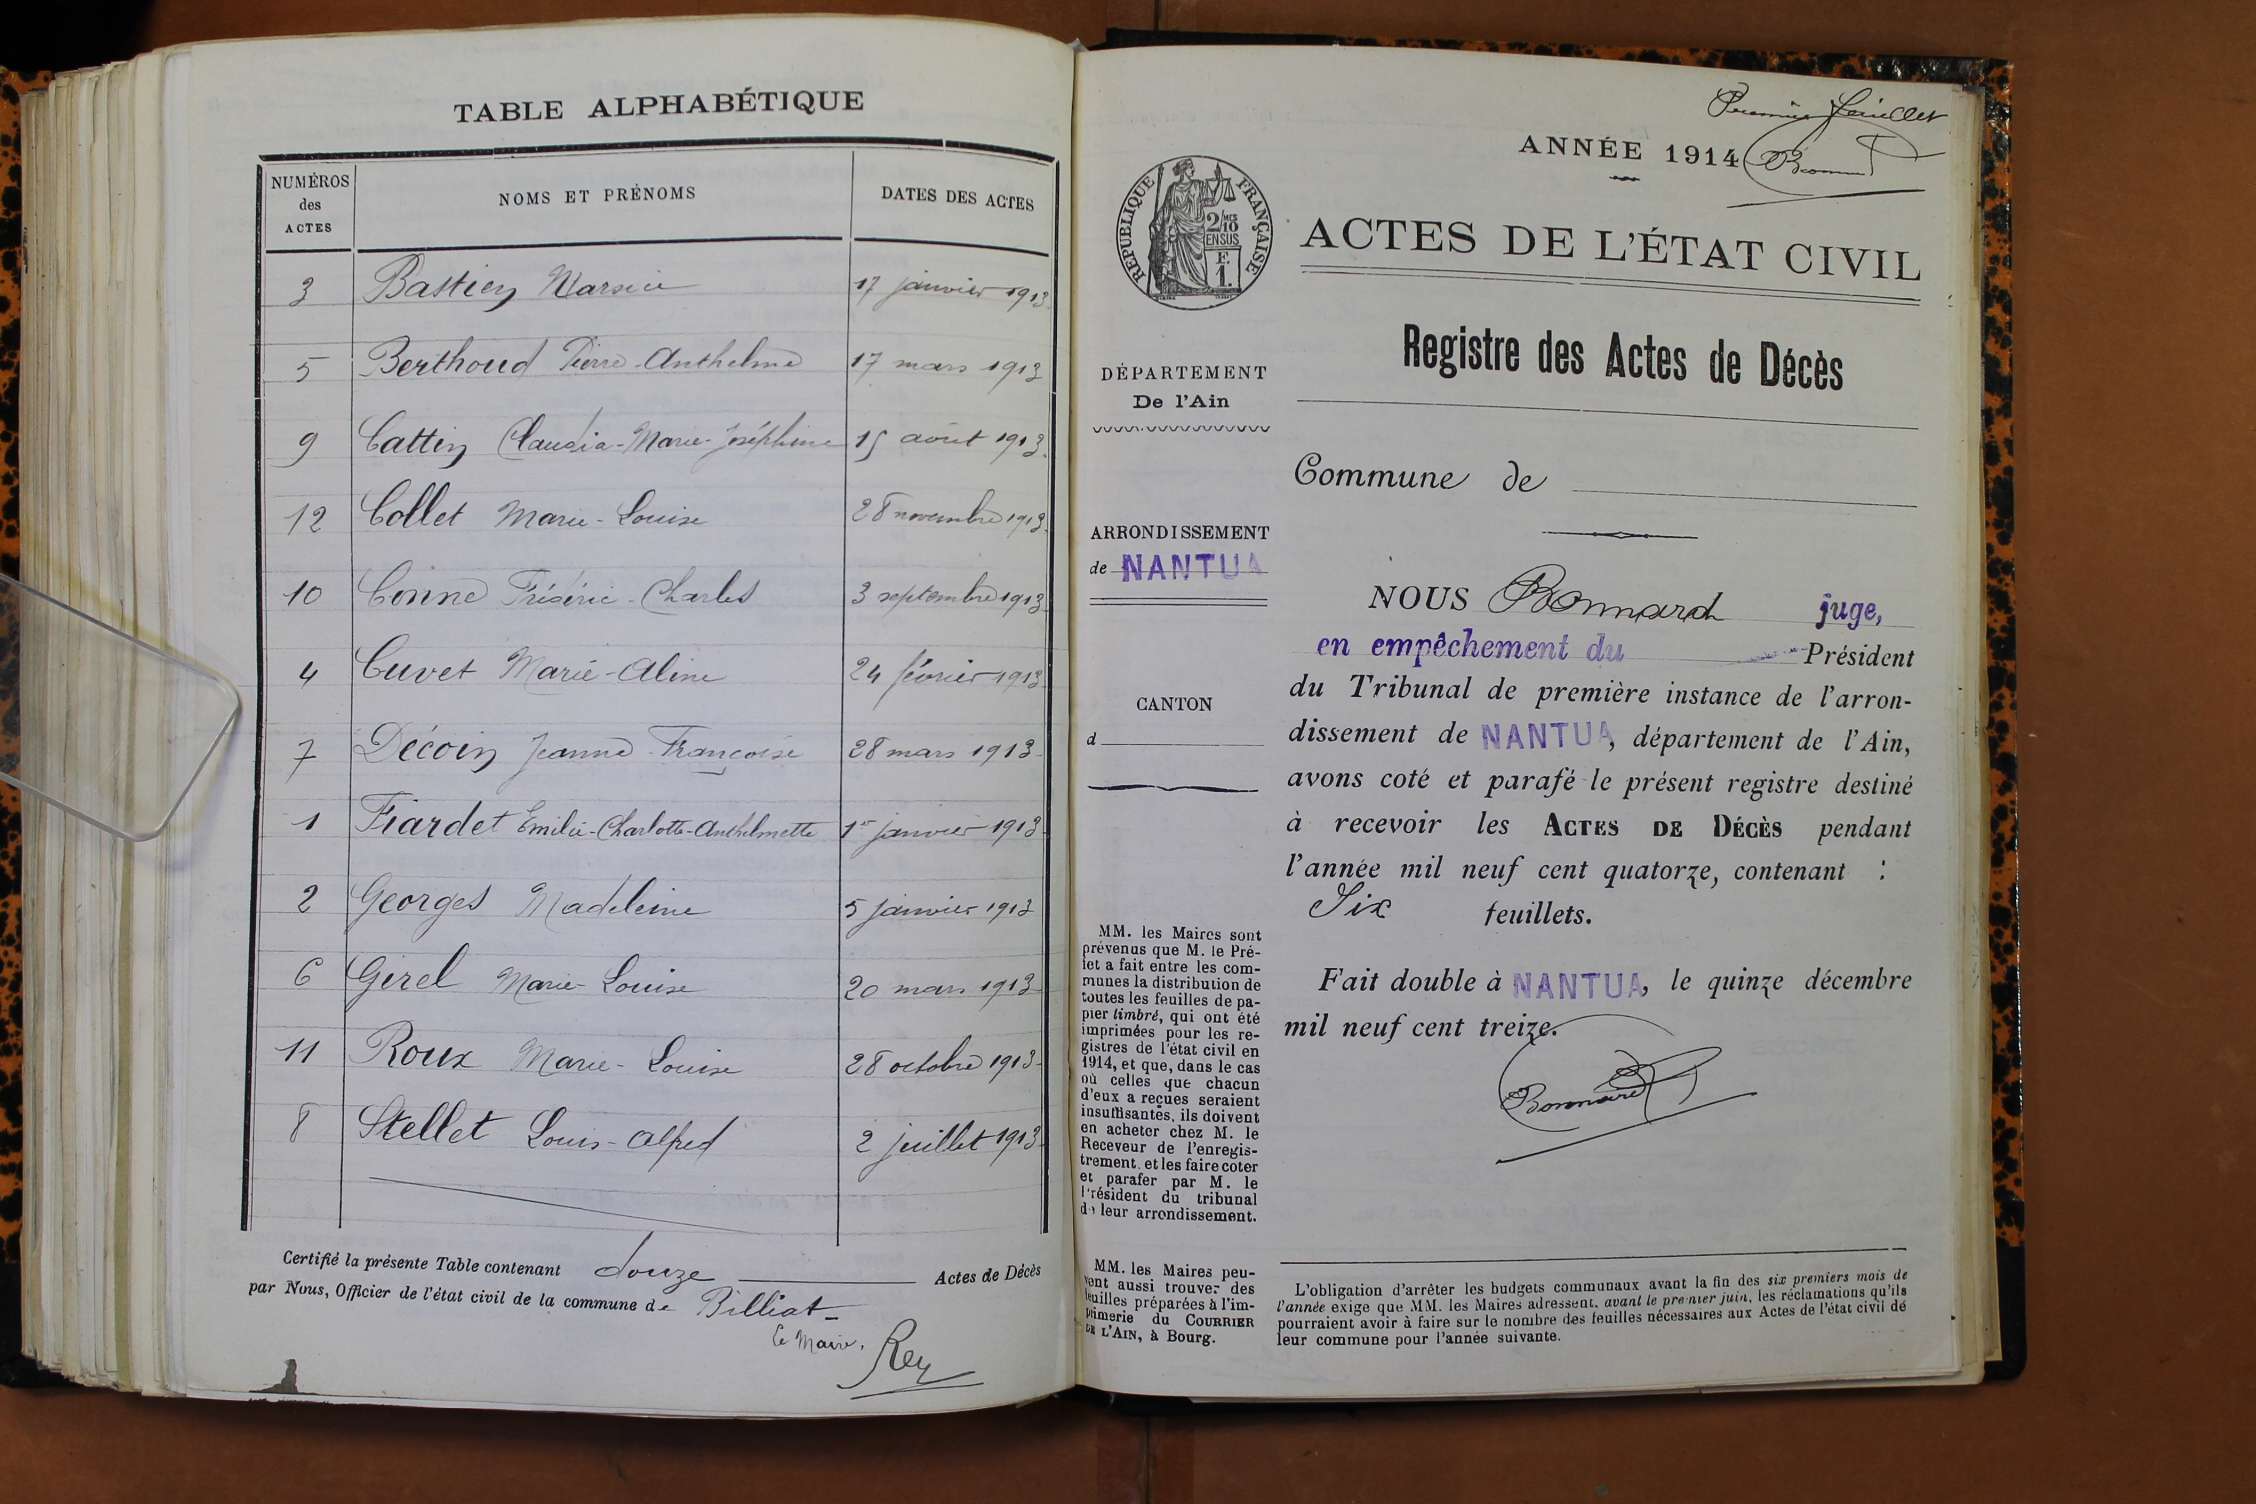 TABLE ALPHABÉTIQUE
NUMÉROS des ACTES NOMS ET PRÉNOMS DATES DES ACTES
3 Bastien 17 janvier 1913
5 Berthoud Pierre-Anthelme 17 mars 1913
9 Cattin Claudia-Marie-Joséphine 15 août 1913.
12 Collet Marie-Louise 28 novembre 1913.
10 Frédéric-Charles 3 septembre 1913
4 Cuvet Marie-Aline 24 février 1913
7 Décoin Jeanne-Françoise 28 mars 1913-
1 Fiardet Emilie-Charlotte-Anthelmette 1er janvier 1913
2 Georges Madeleine 5 janvier 1913
6 Girel Marie-Louise 20 mars 1913
11 Roux Marie-Louise 28 octobre 1913-
8 Stellet Louis-Alfred 2 juillet 1913-
Certifié la présente Table contenant douze Actes de Décès
par Nous, Officier de l'état civil de la commune de Billiat-
Le Maire,
Rey
Premier feuillet
ANNÉE 1914
RÉPUBLIQUE FRANÇAISE
2/10 MES
EN SUS
F.
1.
ACTES DE L'ÉTAT CIVIL
Registre des Actes de Décès
DÉPARTEMENT
De l'Ain
Commune de
ARRONDISSEMENT
de NANTUA
CANTON
d
NOUS Bonnard juge,
en empêchement du Président
du Tribunal de première instance de l'arron-
dissement de NANTUA, département de l'Ain,
avons coté et parafé le présent registre destiné
à recevoir les ACTES DE DÉCÈS pendant
l'année mil neuf cent quatorze, contenant :
Six feuillets.
Fait double à NANTUA, le quinze décembre
mil neuf cent treize.
Bonnard
MM. les Maires sont
prévenus que M. le Pré-
fet a fait entre les com-
munes la distribution de
toutes les feuilles de pa-
pier timbré, qui ont été
imprimées pour les re-
gistres de l'état civil en
1914, et que, dans le cas
où celles que chacun
d'eux a reçues seraient
insuffisantes, ils doivent
en acheter chez M. le
Receveur de l'enregis-
trement, et les faire coter
et parafer par M. le
Président du tribunal
de leur arrondissement.
MM. les Maires peu-
vent aussi trouver des
feuilles préparées à l'im-
primerie du COURRIER
DE L'AIN, à Bourg.
L'obligation d'arrêter les budgets communaux avant la fin des six premiers mois de
l'année exige que MM. les Maires adressent, avant le premier juin, les réclamations qu'ils
pourraient avoir à faire sur le nombre des feuilles nécessaires aux Actes de l'état civil de
leur commune pour l'année suivante.